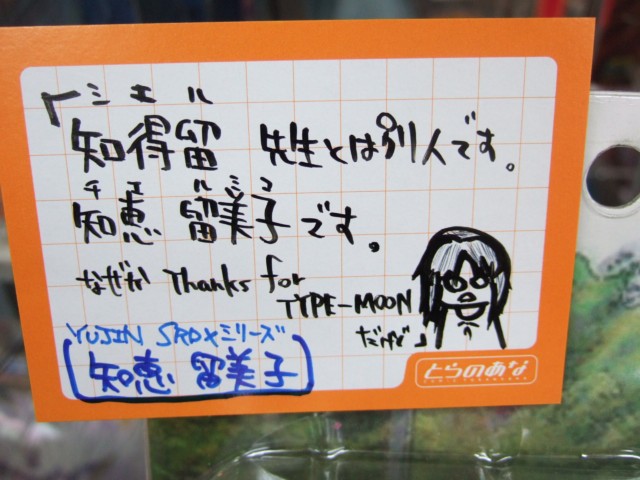 「シエル
知得留 先生とは別人です。
チエ ルミコ
知恵 留美子です。
なぜか Thanks for
TYPE-MOON
だけど」
YUJIN SRDXシリーズ
知恵 留美子
とらのあな